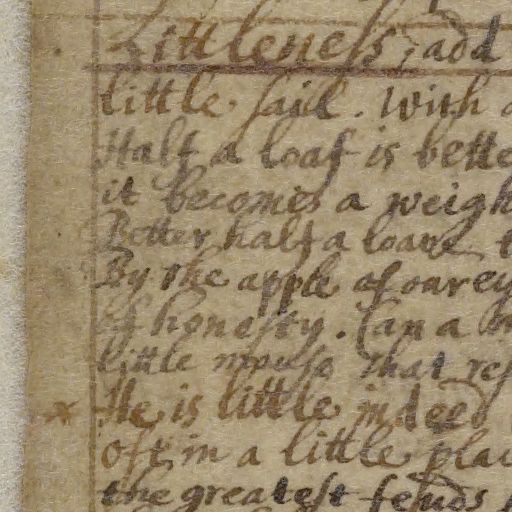 Littleness, add
little said. With a
Half a loaf is bette
it becomes a weigh
Better half a loave t
By the apple of our ey
of honesty. Can a m
little that res
He is little indeed
oft in a little plac
the greatest feuds